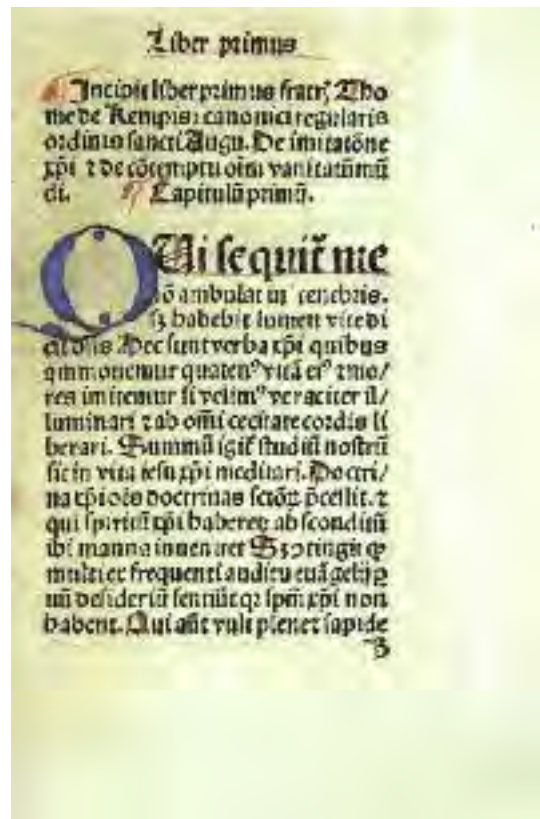 Liber primus
Incipit liber primus fratrꝭ Tho
me de Kempis: canonici regularis
ordinis sancti Augu. De imitatōne
xp̄i ⁊ de cōtemptu oīm vanitatū mū
di. Capitulū primū.
QUi sequit̄ me
nō ambulat in tenebris.
sꝫ habebit lumen vite di
cit dn̄s Hec sunt verba xp̄i quibus
ammonemur quatenꝰ vitā eiꝰ ⁊ mo/
res imitemur si velimꝰ veraciter il/
luminari ⁊ ab omī cecitate cordis li
berari. Summū igit̄ studiū nostrū
sit in vita iesu xp̄i meditari. Doctri/
na xp̄i oēs doctrinas sctōꝝ p̄cellit. ⁊
qui spiritū xp̄i haberet absconditū
ibi manna inueniret Sꝫ ↄtingit ꝙ
multi ex frequenti auditu euāgelij ꝑ
uū desideriū sentiūt qꝛ sp̄m xp̄i non
habent. Qui aūt vult plene ⁊ sapide